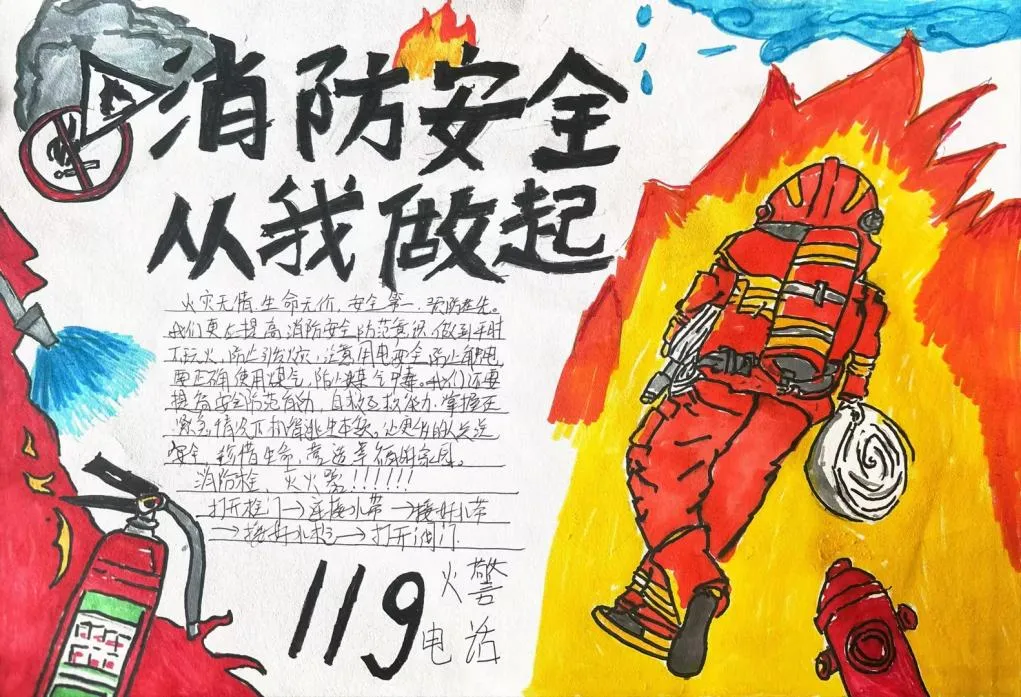 消防安全
从我做起
火灾无情生命无价，安全第一，预防在先。
我们要在提高消防安全防范意识，做到平时
不玩火，防止引发火灾，注意用电安全防止触电
要正确使用煤气，防止煤气中毒。我们还要
提高安全防范能力，自救互救能力，掌握在
紧急情况下机智逃生本领，让更多的人关注
安全，珍惜生命，营造幸福的家园。
消防栓、灭火器！！！！！！
打开栓门→连接水带→接好水带
→接好水枪→打开阀门
119火警
电话